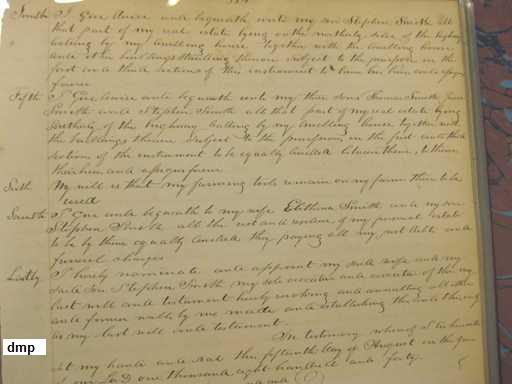 Fourth I Give devise and bequeath unto my son Stephen Smith all
that part of my real estate lying on the northerly side of the highway
leading by my dwelling house together with the dwelling house
and other buildings standing thereon subject to the purposes in the
first and third sections of this instrument to him his heirs and assigns
forever
Fifth I Give devise and bequeath unto my three sons Thomas Smith
Smith and Stephen Smith all that part of my real estate lying
Southerly of the highway leading by my dwelling house together with
the buildings thereon subject to the purposes in the first and third
section of this instrument to be equally divided between them, to them
their heirs and assigns forever
Sixth My will is that my farming tools remain on my farm there to be
used
Seventh I Give and bequeath to my wife Smith and my son
Stephen Smith all the rest and residue of my personal estate
to be by them equally divided they paying all my just debts and
funeral charges
Lastly I hereby nominate and appoint my said wife and my
said son Stephen Smith my sole executrix and executor of this my
last will and testament hereby revoking and annulling all other
and former wills by me made and establishing this and this only
as my last will and testament
In testimony whereof I have
set my hand and seal this fifteenth day of August in the year
of our Lord one thousand eight hundred and forty.
dmp